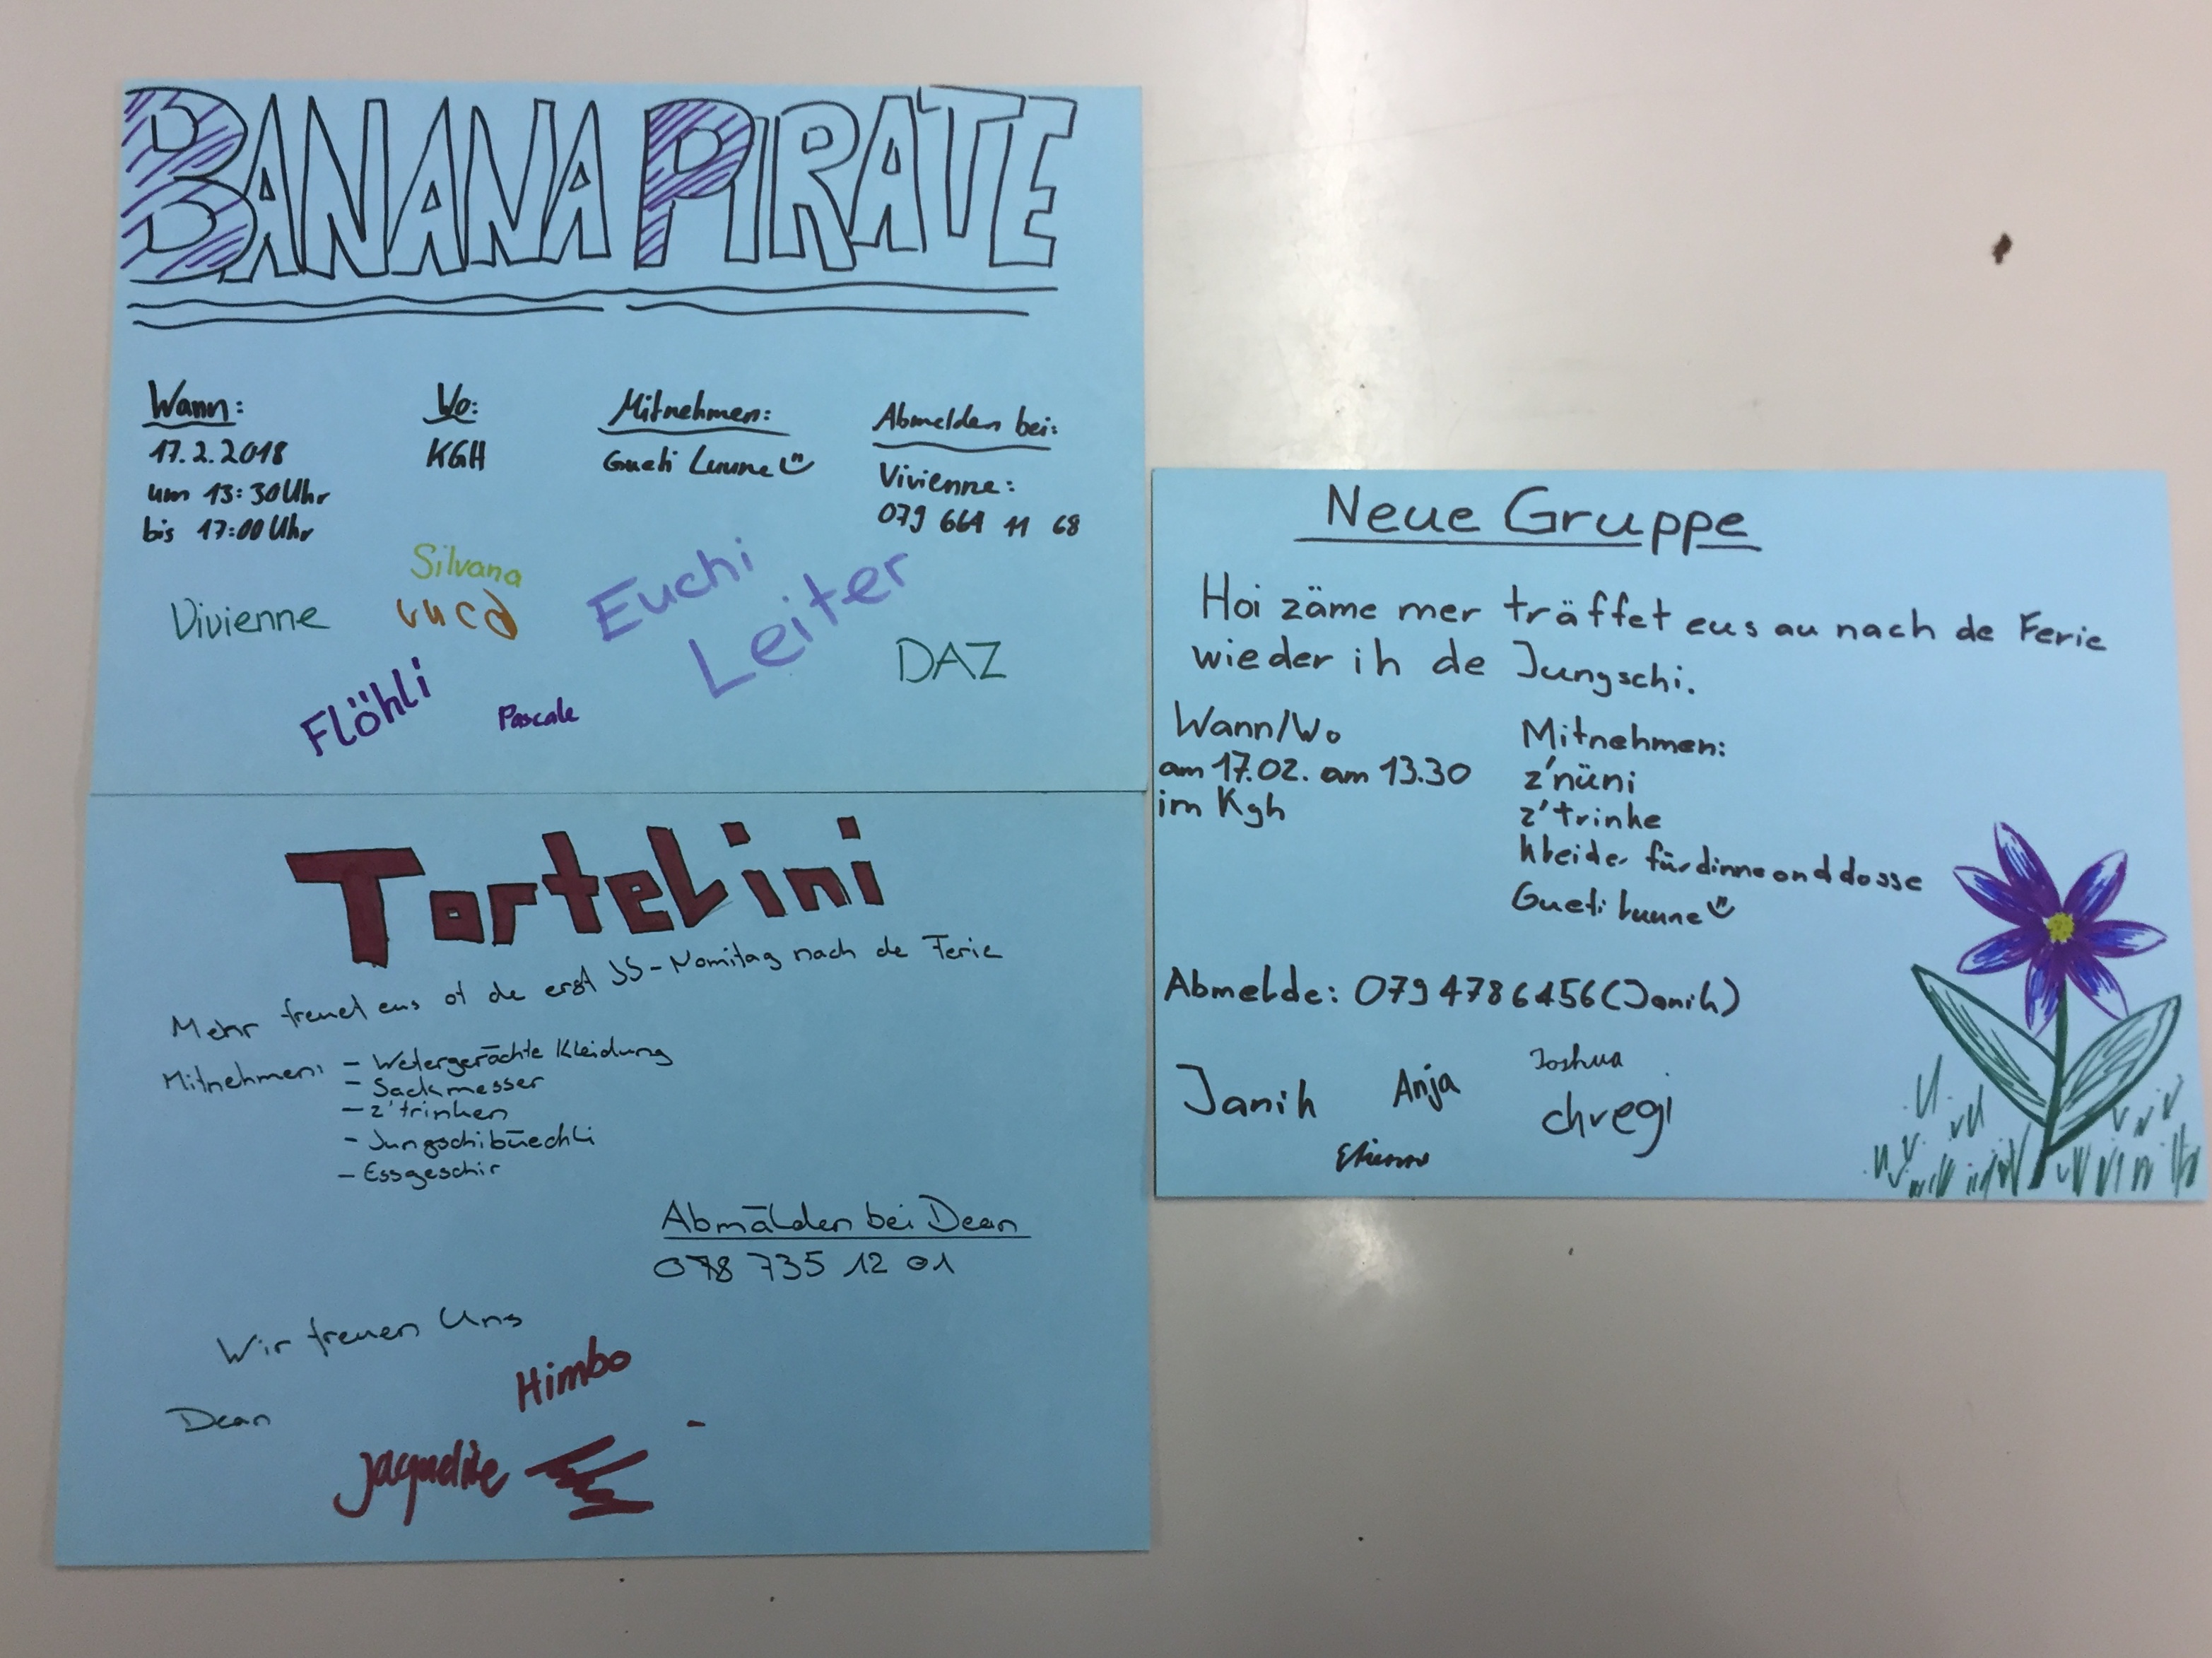 BANANA PIRATE
Wann:
17.2.2018
um 13:30 Uhr
bis 17:00 Uhr
Wo:
KGH
Mitnehmen:
Gueti Luune
Abmelden bei:
Vivienne:
079 664 11 68
Silvana
Vivienne
Euchi
Leiter
DAZ
Flöhli
Pascale
TorteLini
Mehr freued eus of de erst JS-Nomitag nach de Ferie
Mitnehmen: - Wetergerächte Kleidung
- Sackmesser
- z'trinken
- Jungschibüechli
- Essgeschir
Abmälden bei Dean
078 735 12 01
Wir freuen Uns
Himbo
Dean
Jaqueline
Neue Gruppe
Hoi zäme mer träffet eus au nach de Ferie
wieder ih de Jungschi.
Wann/Wo
am 17.02. am 13.30
im Kgh
Mitnehmen:
z'nüni
z'trinke
kleider für dinne ond dosse
Gueti luune
Abmelde: 079 478 64 56 (Janik)
Janik
Anja
Joshua
chregi
Etienne